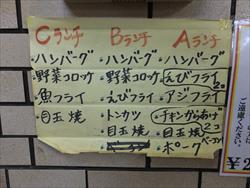 Cランチ
・ハンバーグ
・野菜コロッケ
・魚フライ
・目玉焼
Bランチ
・ハンバーグ
・野菜コロッケ
・えびフライ
・トンカツ
・目玉焼
Aランチ
・ハンバーグ
・えびフライ
2コ
・アジフライ
・チキンからあげ
2コ
・目玉焼
・ポークベーコン
ご遠慮ください。